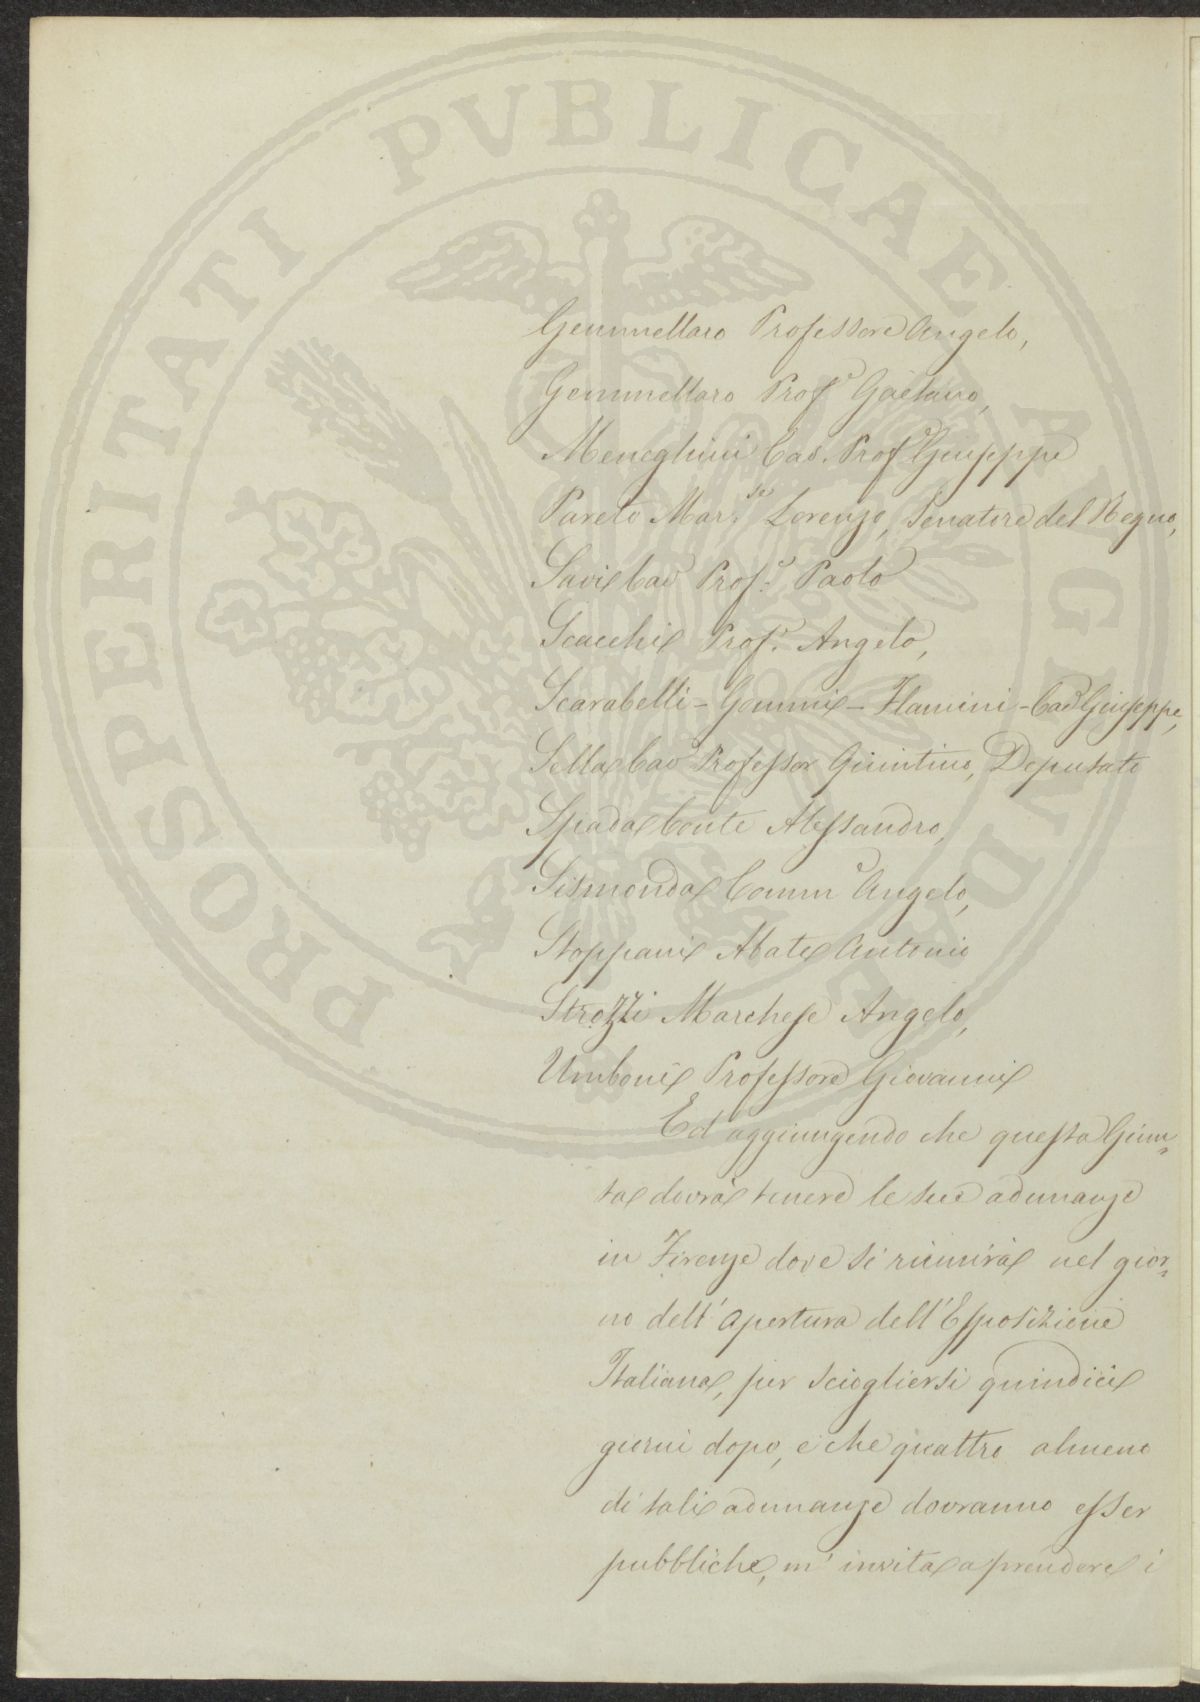 PROSPERITATI PVBLICAE AVGENDAE
Gemmellaro Professore Angelo,
Gemmellaro Prof.e Gaetano,
Meneghini Cav. Prof.e Giuseppe
Pareto Mar.se Lorenzo, Senatore del Regno,
Savi Cav Prof.e Paolo
Scacchi Prof.e Angelo,
Scarabelli-Gommi-Flamini-Cav Giuseppe,
Sella Cav Professor Quintino, Deputato
Spada Conte Alessandro,
Sismonda Comm.e Angelo,
Stoppani Abate Antonio
Strozzi Marchese Angelo,
Umboni Professore Giovanni
Ed aggiungendo che questa Giun-
ta dovrà tenere le sue adunanze
in Firenze dove si riunirà nel gior-
no dell'apertura dell'Esposizione
Italiana, per sciogliersi quindici
giorni dopo, e che quattro almeno
di tali adunanze dovranno esser
pubbliche, m'invita a prendere i